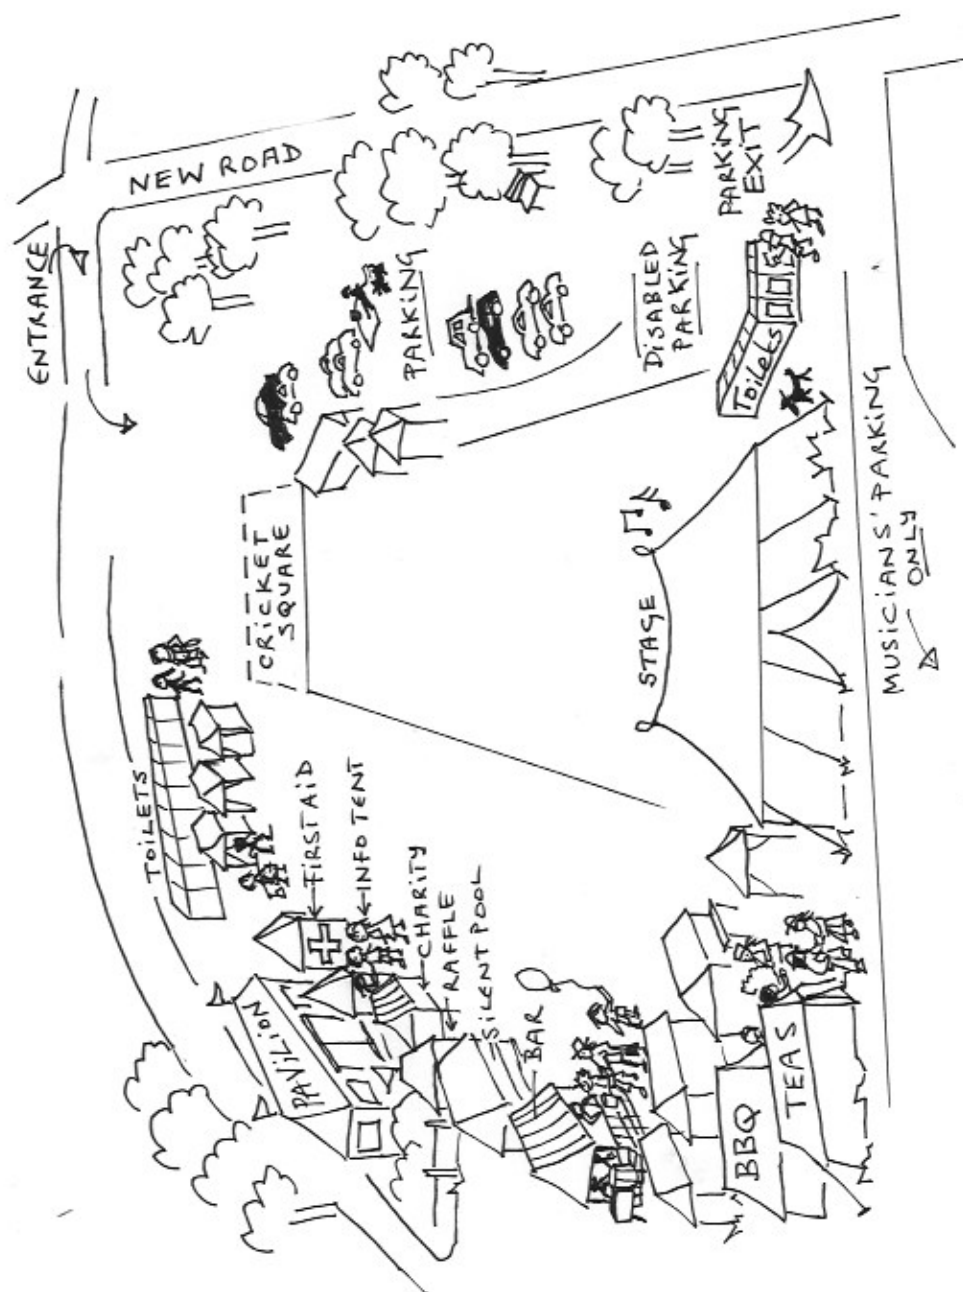 ENTRANCE
NEW ROAD
PARKING
EXIT
PARKING
DISABLED
PARKING
Toilets
CRICKET
SQUARE
STAGE
MUSICIANS' PARKING
ONLY
TOILETS
FIRST AID
INFO TENT
CHARITY
RAFFLE
SILENT POOL
BAR
PAVILION
BBQ
TEAS